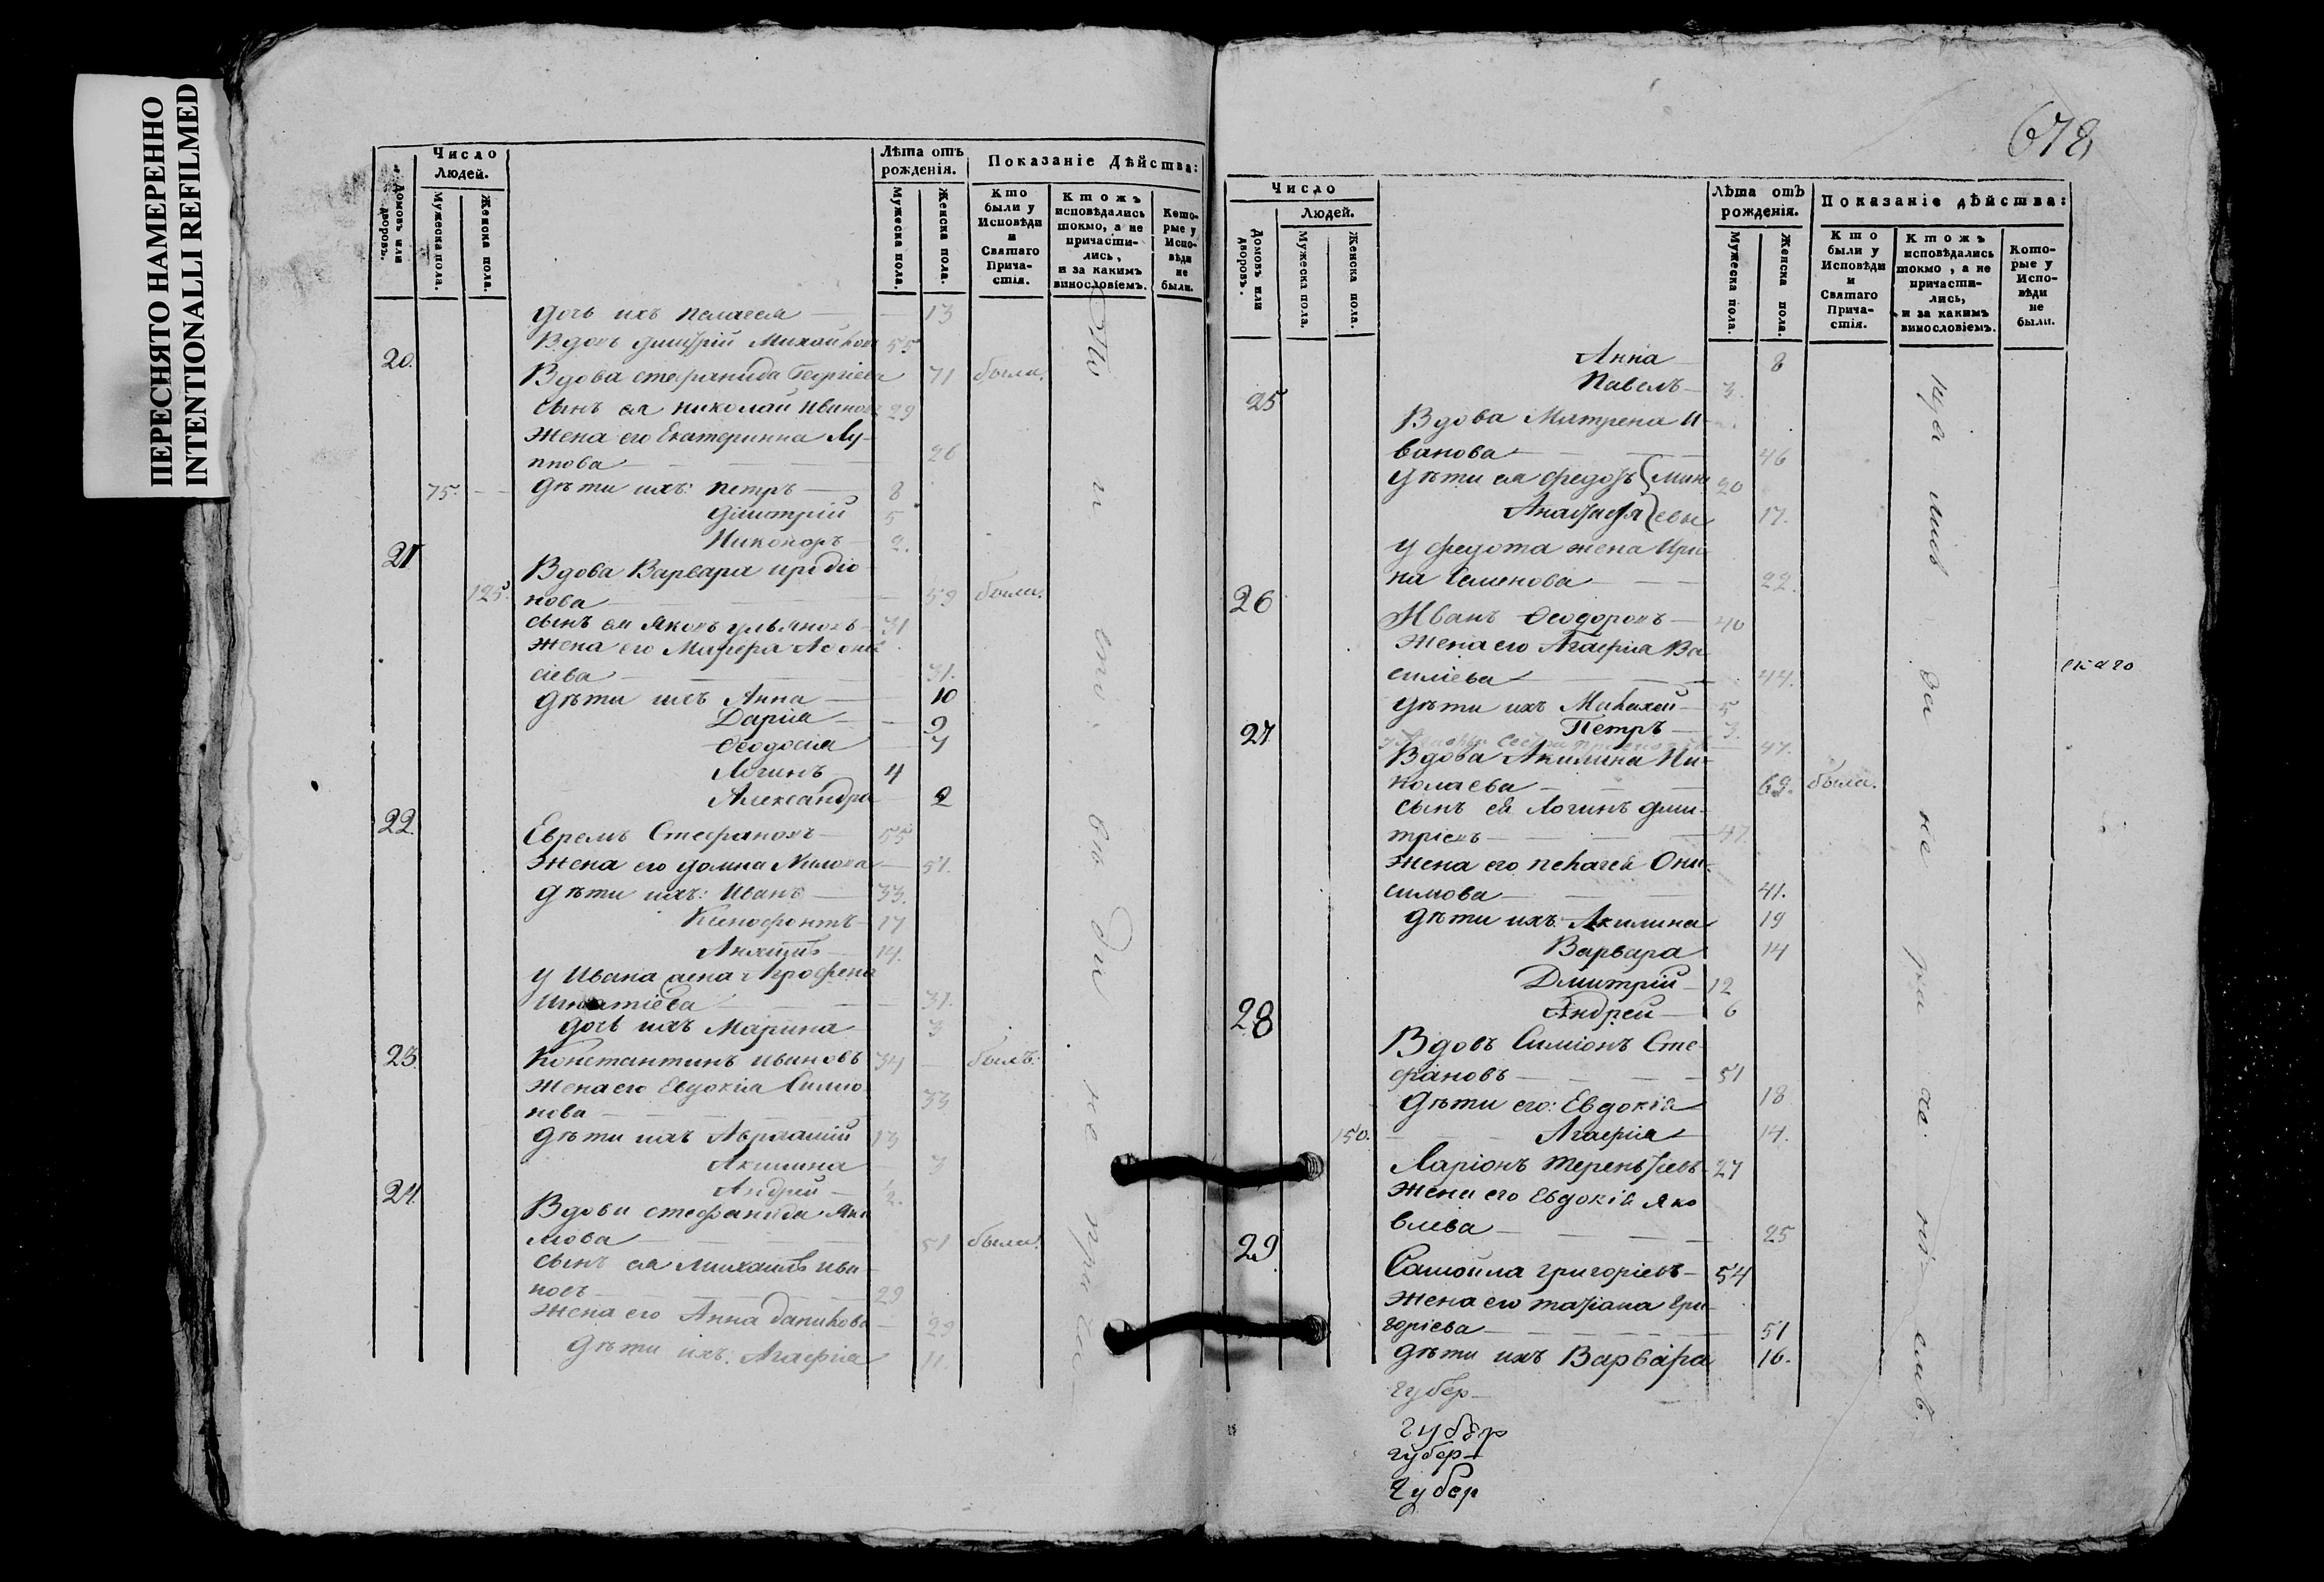 ПЕРЕСНЯТО НАМЕРЕННО
INTENTIONALLI REFILMED
Число
Людей.
Домовъ или дворовъ.
Мужеска пола.
Женска пола.
Лѣта отъ рожденія.
Мужеска пола.
Женска пола.
Показаніе Дѣйства:
Кто были у Исповѣди и Святаго Прича-стія.
Ктожъ исповѣдались токмо, а не причасти-лись, и за какимъ винословіемъ.
Кото-рые у Испо-вѣди не были.
дочь ихъ Пелагея 13
Вдовъ Дмитрій 55
20. Вдова Стефанида Георгіева 71 была.
сынъ ея Николай Ивановъ 29
Жена его Екатерина Лу-
ппова 26
75. дѣти ихъ: Петръ 8
Димитрій 5
Никоноръ 2.
21 Вдова Варвара
125. нова 59 была.
сынъ ея Яковъ Ульяновъ 31
Жена его
сіева 31.
дѣти ихъ Анна 10
Дарія 9
Феодосія 7
Логинъ 4
Александра 2
22. Ефремъ Стефановъ 55
Жена его Домна 51.
дѣти ихъ: Иванъ 33.
Ксенофонтъ 17
14.
у Ивана жена Агрофена
Игнатіева 31.
дочь ихъ Марина 3
23. Константинъ Ивановъ 34 былъ.
Жена его Евдокіа Симио
нова 33
дѣти ихъ Аврамій 13
Акилина 3
Андрей 2.
24. Вдова Стефанида Яки
мова 51 была.
сынъ ея Михаилъ Ива
новъ 29
Жена его Анна Данилова 29
дѣти ихъ: Агафіа 11.
678
Число
Людей.
Домовъ или дворовъ.
Мужеска пола.
Женска пола.
Лѣта отъ рожденія.
Мужеска пола.
Женска пола.
Показаніе дѣйства:
Кто были у Исповѣди и Святаго Прича-стія.
Ктожъ исповѣдались токмо, а не причасти-лись, и за какимъ винословіемъ.
Кото-рые у Испо-вѣди не были.
Анна 8
Павелъ 3.
25 Вдова Матрена И-
ванова 46
дѣти ея Федотъ 20
Анастасія 17.
у Федота жена Ири-
на Семенова 22.
26 Иванъ Феодоровъ 40
Жена его Агафіа Ва
силіева 44.
дѣти ихъ Михаилъ 5
Петръ 3.
47.
27 Вдова Акилина Ни-
колаева 69. была.
сынъ ея Логинъ Дми-
тріевъ 47.
Жена его Пелагея Они-
симова 41.
дѣти ихъ: Акилина 19
Варвара 14
Дмитрій 12
Андрей 6
28 Вдовъ Симіонъ Сте-
фановъ 51
дѣти его: Евдокіа 18
150. Агафіа 14.
Ларіонъ Терентьевъ 27
Жена его Евдокіа Яко
влева 25
29 Самойла Григоріевъ 54
Жена его Татіана Гри-
горіева 51
дѣти ихъ Варвара 16.
губер
губер
губер
губер
скаго